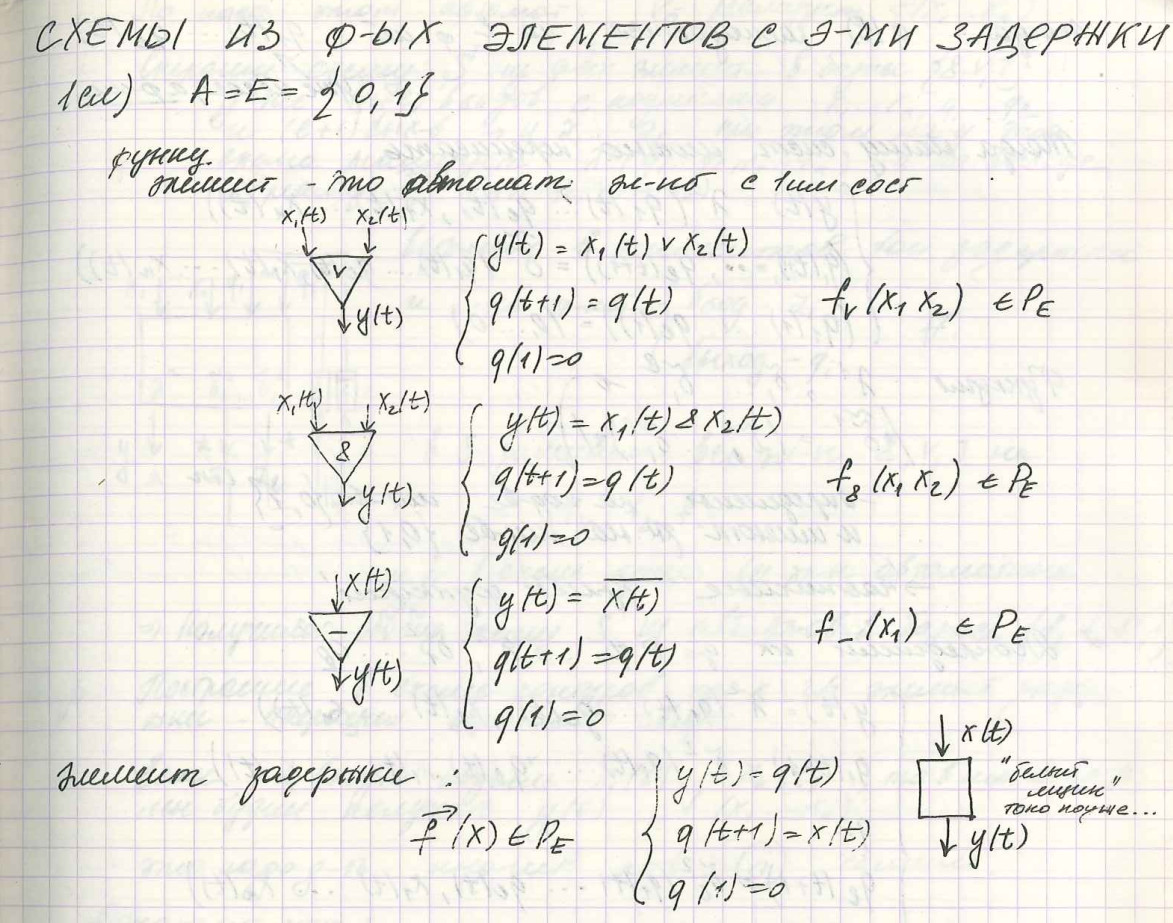 СХЕМЫ ИЗ Ф-ЫХ ЭЛЕМЕНТОВ С Э-МИ ЗАДЕРЖКИ
1(сл) A = E = {0,1}
функц.
элемент - это автомат эл-нб с 1им сост
x₁(t) x₂(t)
∨
y(t)
y(t) = x₁(t) ∨ x₂(t)
q(t+1) = q(t)
q(1)=0
f∨(x₁ x₂) ∈ P_E
x₁(t) x₂(t)
&
y(t)
y(t) = x₁(t) & x₂(t)
q(t+1) = q(t)
q(1)=0
f&(x₁ x₂) ∈ P_E
x(t)
−
y(t)
y(t) = x̅(̅t̅)̅
q(t+1) = q(t)
q(1) = 0
f₋(x₁) ∈ P_E
элемент задержки :
f⃗(x) ∈ P_E
y(t) = q(t)
q(t+1) = x(t)
q(1) = 0
x(t)
"белый
ящик"
токо поуже...
y(t)